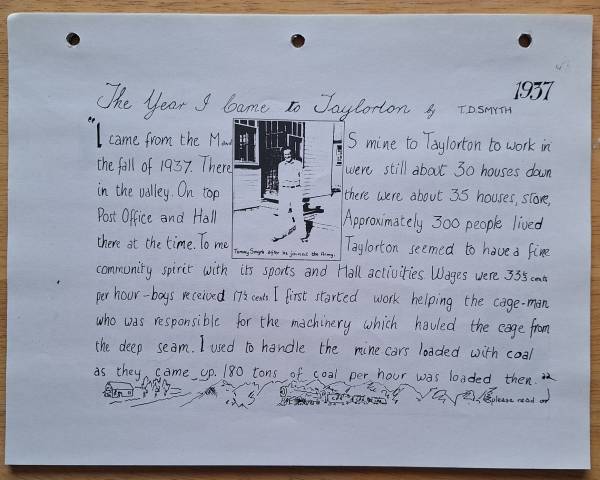 1937
The Year I Came to Taylorton by T.D.SMYTH
"I came from the M and S mine to Taylorton to work in
the fall of 1937. There were still about 30 houses down
in the valley. On top there were about 35 houses, store,
Post Office and Hall Approximately 300 people lived
there at the time. To me Taylorton seemed to have a fine
Tommy Smyth after he joined the Army.
community spirit with its sports and Hall activities Wages were 33½ cents
per hour-boys received 17½ cents I first started work helping the cage-man
who was responsible for the machinery which hauled the cage from
the deep seam. I used to handle the mine cars loaded with coal
as they came up. 180 tons of coal per hour was loaded then.
(please read on)